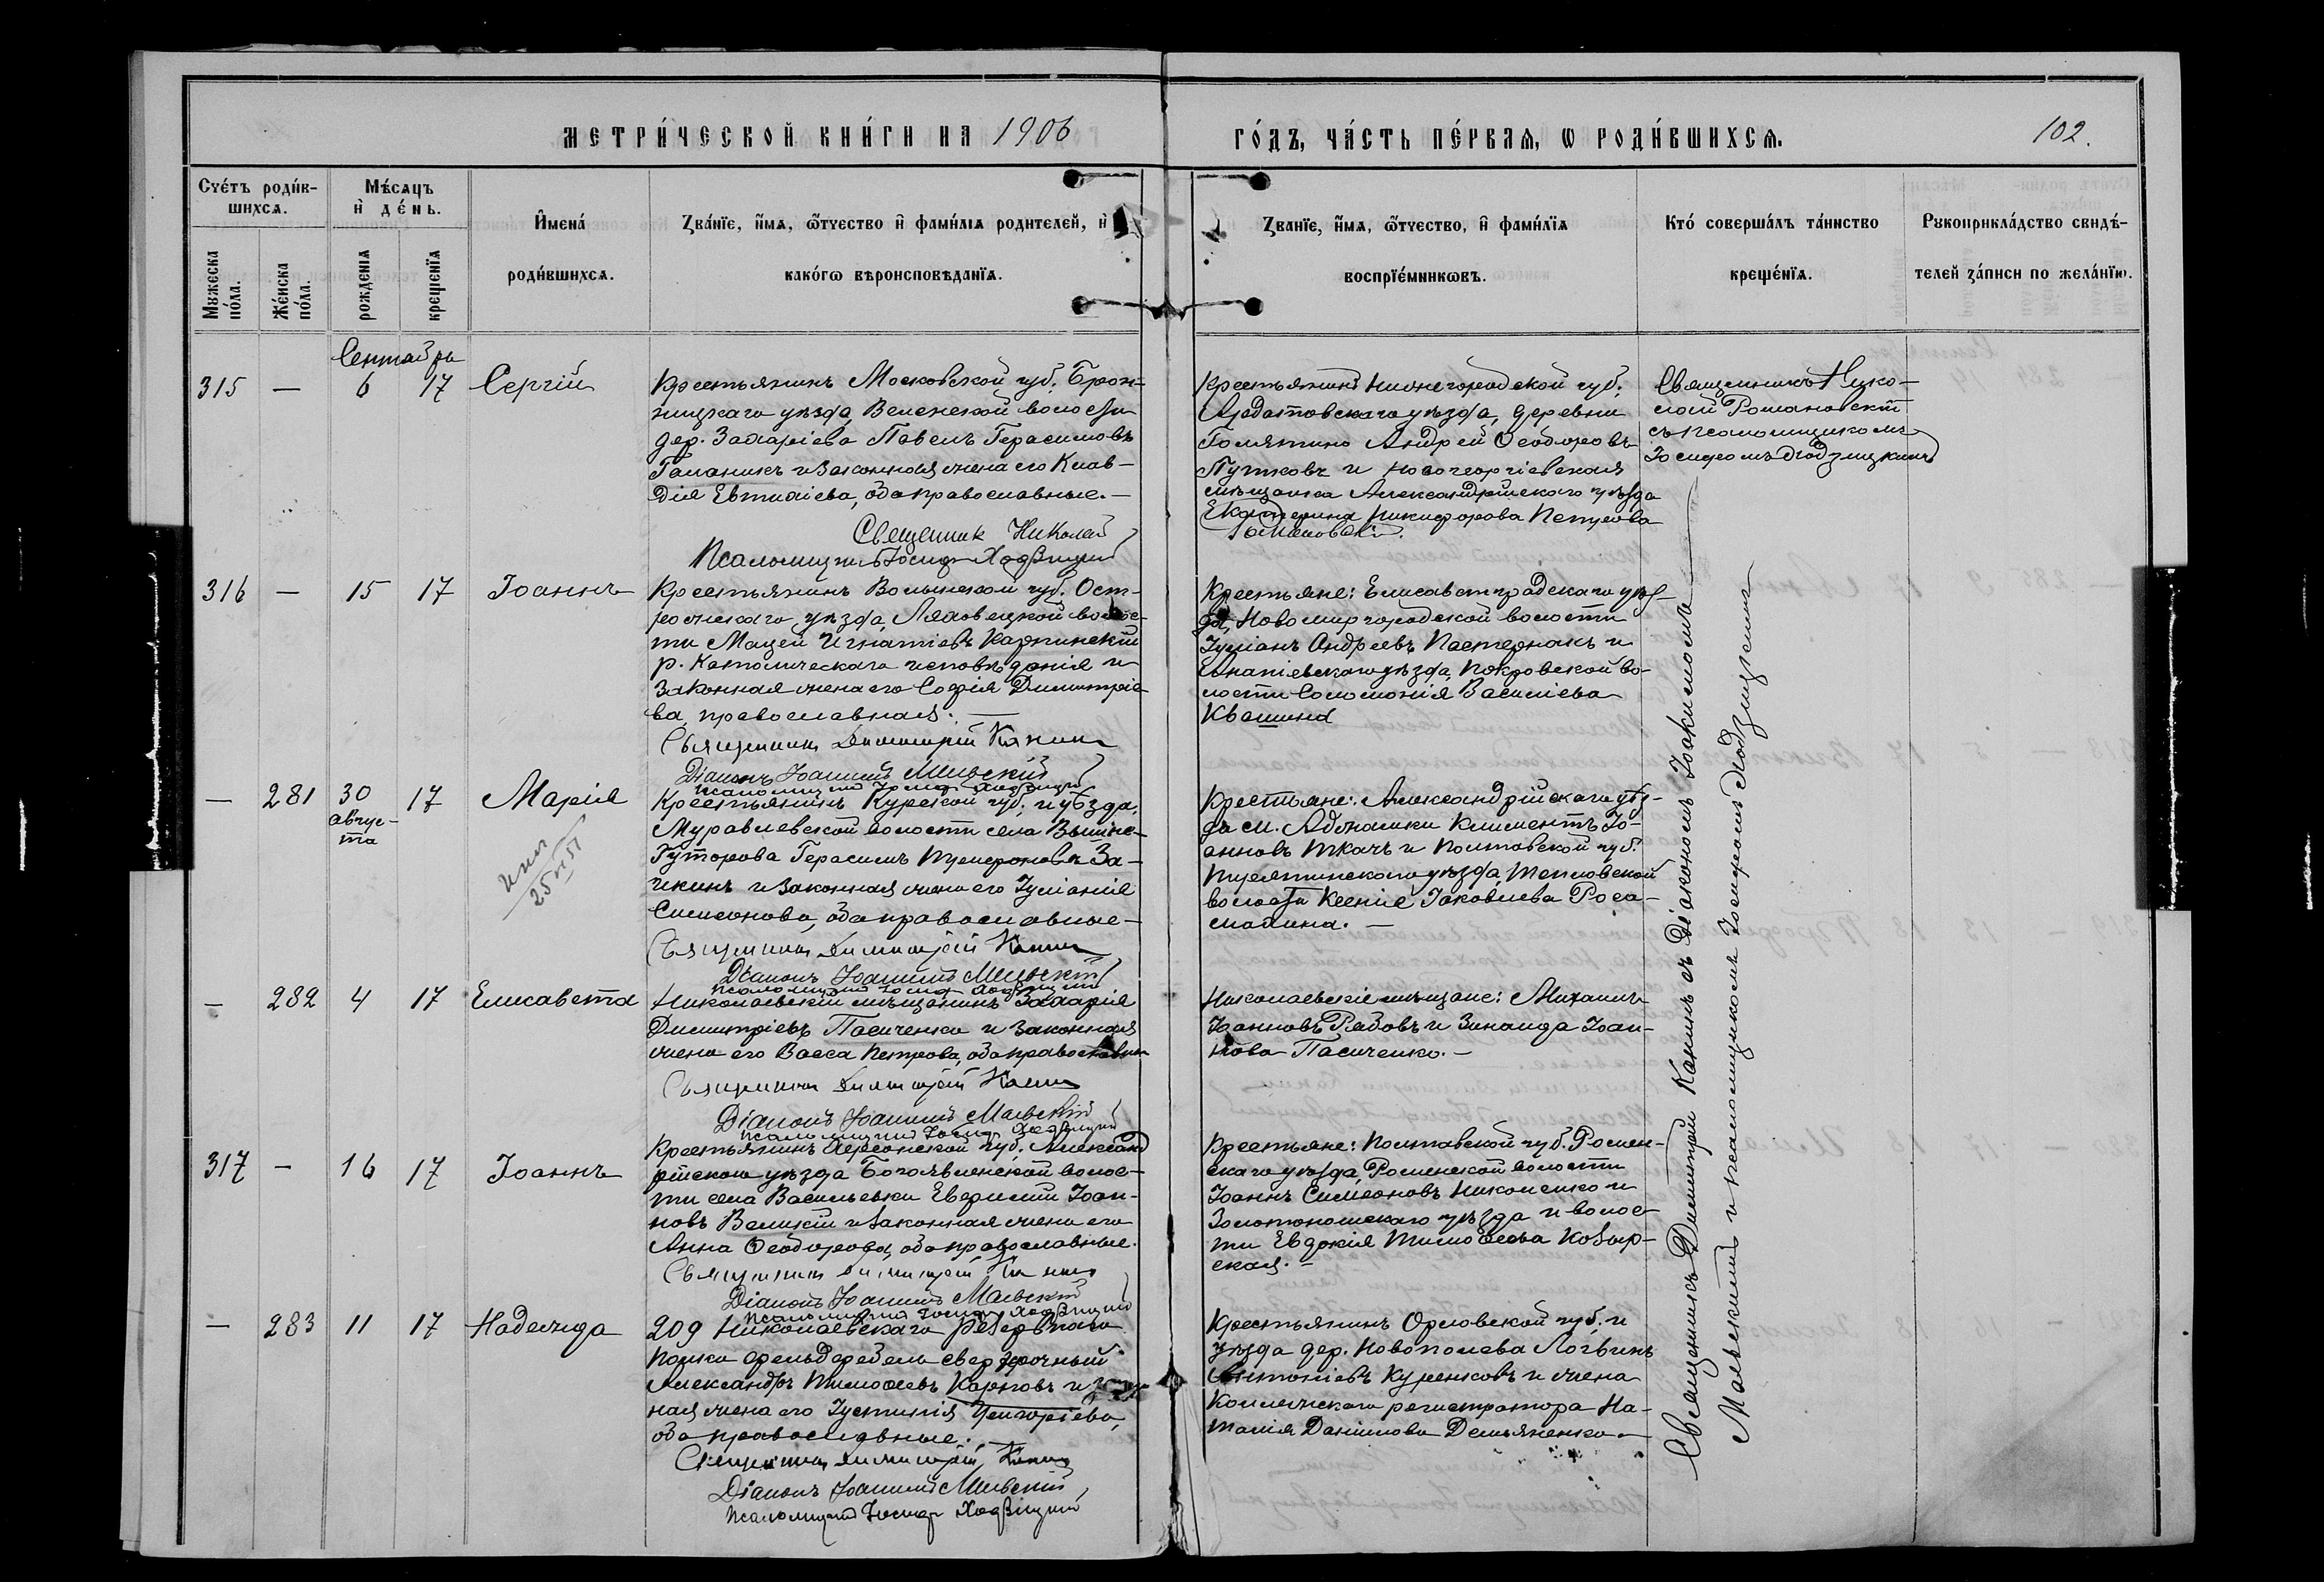 МЕТРИ́ЧЕСКОЙ КНИ́ГИ НА 1906
ГО́ДЪ, ЧА́СТЬ ПЕ́РВАѦ, Ѡ РОДИ́ВШИХСѦ.
102.
Сче́тъ роди́в-
шихсѧ.
Мꙋжеска
по́ла.
Же́нска
по́ла.
Мѣ́сѧцъ
и҆ де́нь.
рожденїѧ
крещенїѧ
И҆мена́
роди́вшихсѧ.
Зва́нїе, и҆́мѧ, ѻ҆́тчество и҆ фами́лїѧ родителей, и҆
како́гѡ вѣроисповѣданїѧ.
Званїе, и҆́мѧ, ѻ҆́тчество, и҆ фами́лїѧ
воспрїе́мникѡвъ.
Кто́ соверша́лъ та́инство
креще́нїѧ.
Рꙋкоприкла́дство свидѣ́-
телей за́писи по жела́нїю.
Сентябрь
315 — 6 17 Сергій
Крестьянинъ Московской губ. Брон-
ницкаго уѣзда, Веленской волости
дер. Захаріева Павелъ Герасимовъ
Галанинъ и законная жена его Клав-
дія Евтихіева, оба православные.—
Священник Николай
Псаломщикъ Іосифъ Ходзицкій
Крестьянинъ Нижегородской губ.
Ардатовскаго уѣзда, деревни
Голяткино Андрей Ѳеодоровъ
Путковъ и новогеоргіевская
мѣщанка Александрійскаго уѣзда
Екатерина Никифорова Петрова
Романовскій.
Священникъ Нико-
лай Романовскій
съ псаломщикомъ
Іосифомъ Ходзицкимъ
316 — 15 17 Іоаннъ
Крестьянинъ Волынской губ. Ост-
рожскаго уѣзда, Ляховецкой волос-
ти Мацей Игнатіевъ Карпинскій
р. католическаго исповѣданія и
законная жена его Софія Димитріе-
ва, православная.—
Священникъ Димитрій Канинъ
Діаконъ Іоакимъ Мильскій
Псаломщикъ Іосифъ Ходзицкій
Крестьяне: Елисаветградскаго уѣз-
да, Новомиргородской волости
Іуліанъ Андреевъ Пастернакъ и
Ананіевскаго уѣзда, Покровской во-
лости Соломонія Василіева
Квашина
— 281 30 17 Марія
авгус-
та
25
Крестьянинъ Курской губ. и уѣзда,
Муравлевской волости села Вышне-
Гуторова Герасимъ Трифоновъ За-
икинъ и законная жена его Іуліанія
Симеонова, оба православные—
Священникъ Димитрій Канинъ
Діаконъ Іоакимъ Мильскій
Псаломщикъ Іосифъ Ходзицкій
Крестьяне: Александрійскаго уѣз-
да м. Аджамки Климентъ Іо-
анновъ Ткачъ и Полтавской губ.
Пирятинскаго уѣзда, Тепловской
волости Ксенія Іаковлева Роса-
махина.—
— 282 4 17 Елисавета
Николаевскій мѣщанинъ Захарія
Димитріевъ Пасиченко и законная
жена его Васса Петрова, оба православны
Священникъ Димитрій Канинъ
Діаконъ Іоакимъ Мильскій
Псаломщикъ Іосифъ Ходзицкій
Николаевскіе мѣщане: Михаилъ
Іоанновъ Рябовъ и Зинаида Іоан-
нова Пасиченко.—
317 — 16 17 Іоаннъ
Крестьянинъ Херсонской губ. Александ
рійскаго уѣзда Богоявленской волос-
ти села Васильевки Евфимій Іоан-
новъ Великій и законная жена его
Анна Ѳеодорова, оба православные.
Священникъ Димитрій Канинъ
Діаконъ Іоакимъ Мильскій
Псаломщикъ Іосифъ Ходзицкій
Крестьяне: Полтавской губ. Ромен-
скаго уѣзда, Роменской волости
Іоаннъ Симеоновъ Николенко и
Золотоношскаго уѣзда и волос-
ти Евдокія Тимоѳеева Козыр-
ская.—
— 283 11 17 Надежда
209 Николаевскаго резервнаго
полка фельдфебель сверхсрочный
Александръ Тимоѳеевъ Карповъ и закон
ная жена его Іустинія Григоріева,
оба православные.—
Священникъ Димитрій Канинъ
Діаконъ Іоакимъ Мильскій
Псаломщикъ Іосифъ Ходзицкій
Крестьянинъ Орловской губ. и
уѣзда дер. Новополева Логвинъ
Антоніевъ Куренковъ и жена
Коллежскаго регистратора На-
талія Даніилова Демьяненко—
Священникъ Димитрій Канинъ съ Діакономъ Іоакимомъ
Мильскимъ и псаломщикомъ Іосифомъ Ходзицкимъ